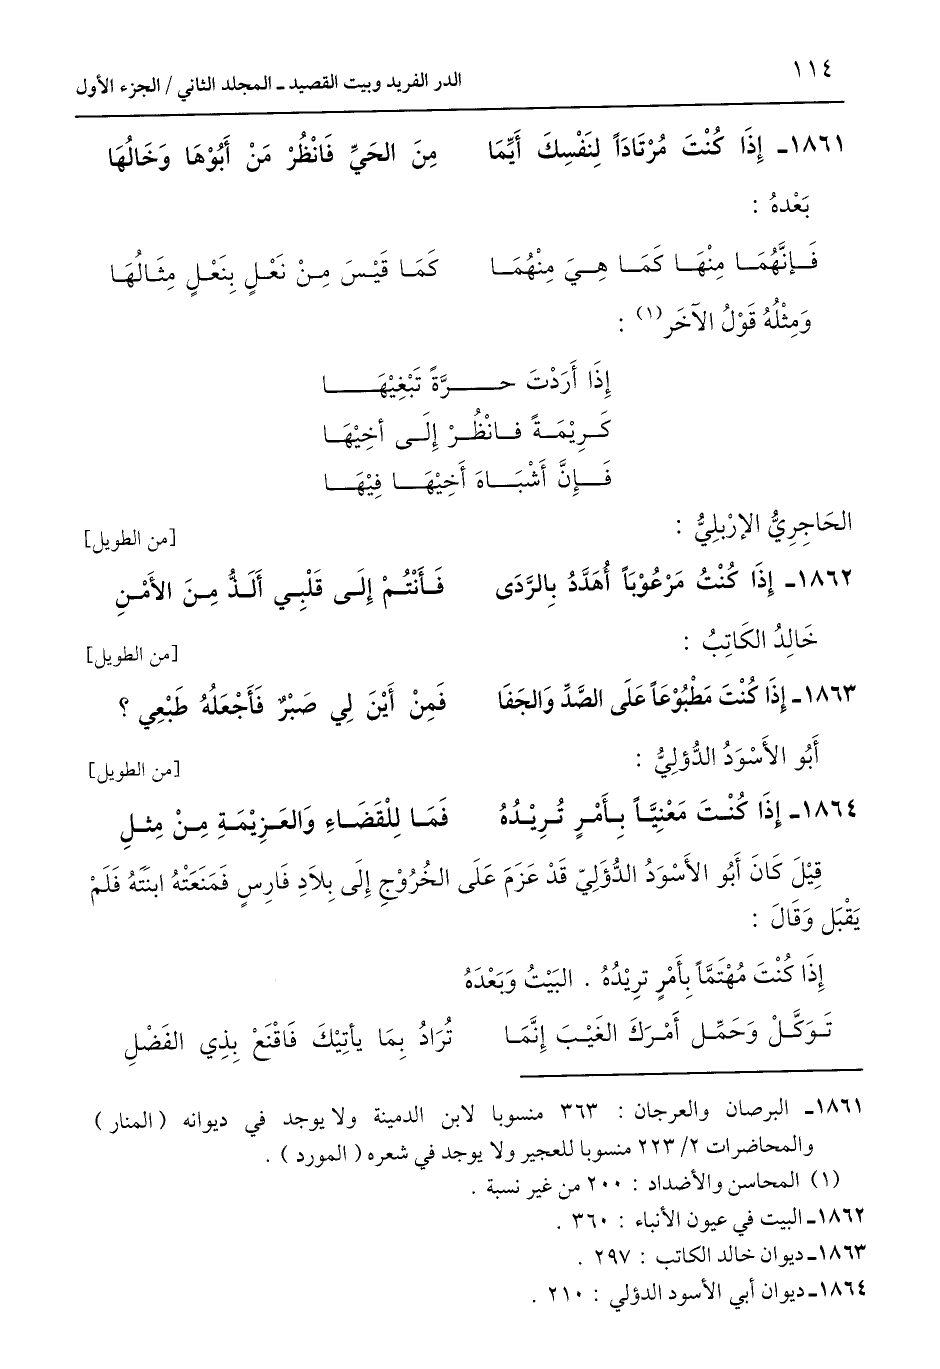 ١١٤ الدر الفريد وبيت القصيد ـ المجلد الثاني / الجزء الأول
١٨٦١ـ إِذَا كُنْتَ مُرْتَادَاً لِنَفْسِكَ أَيِّمَا مِنَ الحَيِّ فَانْظُرْ مَنْ أَبُوْهَا وَخَالُهَا
بَعْدهُ :
فَإِنَّهُمَا مِنْهَا كَمَا هِيَ مِنْهُمَا كَمَا قَيْسَ مِنْ نَعْلٍ بِنَعْلٍ مِثَالُهَا
وَمِثْلُهُ قَوْلُ الآخَرِ (١) :
إِذَا أَرَدْتَ حرَّةً تَبْغِيْهَا
كَرِيْمَةً فانْظُرْ إِلَى أخِيْهَا
فَإِنَّ أَشْبَاهَ أَخِيْهَا فِيْهَا
الحَاجِرِيُّ الإرْبلِيُّ : [من الطويل]
١٨٦٢ـ إِذَا كُنْتُ مَرْعُوْبَاً أُهَدَّدُ بِالرَّدَى فَأَنْتُمْ إِلَى قَلْبِي أَلَذُّ مِنَ الأَمْنِ
خَالِدُ الكَاتِبُ : [من الطويل]
١٨٦٣ـ إِذَا كُنْتَ مَطْبُوْعَاً عَلَى الصَّدِّ وَالجَفَا فَمِنْ أَيْنَ لِي صَبْرٌ فَأَجْعَلُهُ طَبْعِي ؟
أَبُو الأَسْوَدُ الدُّؤلِيُّ : [من الطويل]
١٨٦٤ـ إِذَا كُنْتَ مَعْنِيَّاً بِأَمْرٍ تُرِيْدُهُ فَمَا لِلْقَضَاءِ وَالعَزِيْمَةِ مِنْ مِثلِ
قِيْلَ كَانَ أَبُو الأَسْوَدُ الدُّؤَلِيّ قَدْ عَزَمَ عَلَى الخُرُوْجِ إِلَى بِلاَدِ فَارِسٍ فَمَنَعَتْهُ ابنَتَهُ فَلَمْ
يَقْبَل وَقَالَ :
إِذَا كُنْتَ مُهْتَمَّاً بِأَمْرٍ تريْدُهُ . البَيْتُ وَبَعْدَهُ
تَوَكَّلْ وَحَمِّل أَمْرَكَ الغَيْبَ إِنَّمَا تُرَادُ بِمَا يأتِيْكَ فَاقْنَعْ بِذِي الفَضْلِ
١٨٦١ـ البرصان والعرجان : ٣٦٣ منسوبا لابن الدمينة ولا يوجد في ديوانه ( المنار )
والمحاضرات ٢/ ٢٢٣ منسوبا للعجير ولا يوجد في شعره ( المورد ) .
(١) المحاسن والأضداد : ٢٠٠ من غير نسبة .
١٨٦٢ـ البيت في عيون الأنباء : ٣٦٠ .
١٨٦٣ـ ديوان خالد الكاتب : ٢٩٧ .
١٨٦٤ـ ديوان أبي الأسود الدؤلي : ٢١٠ .